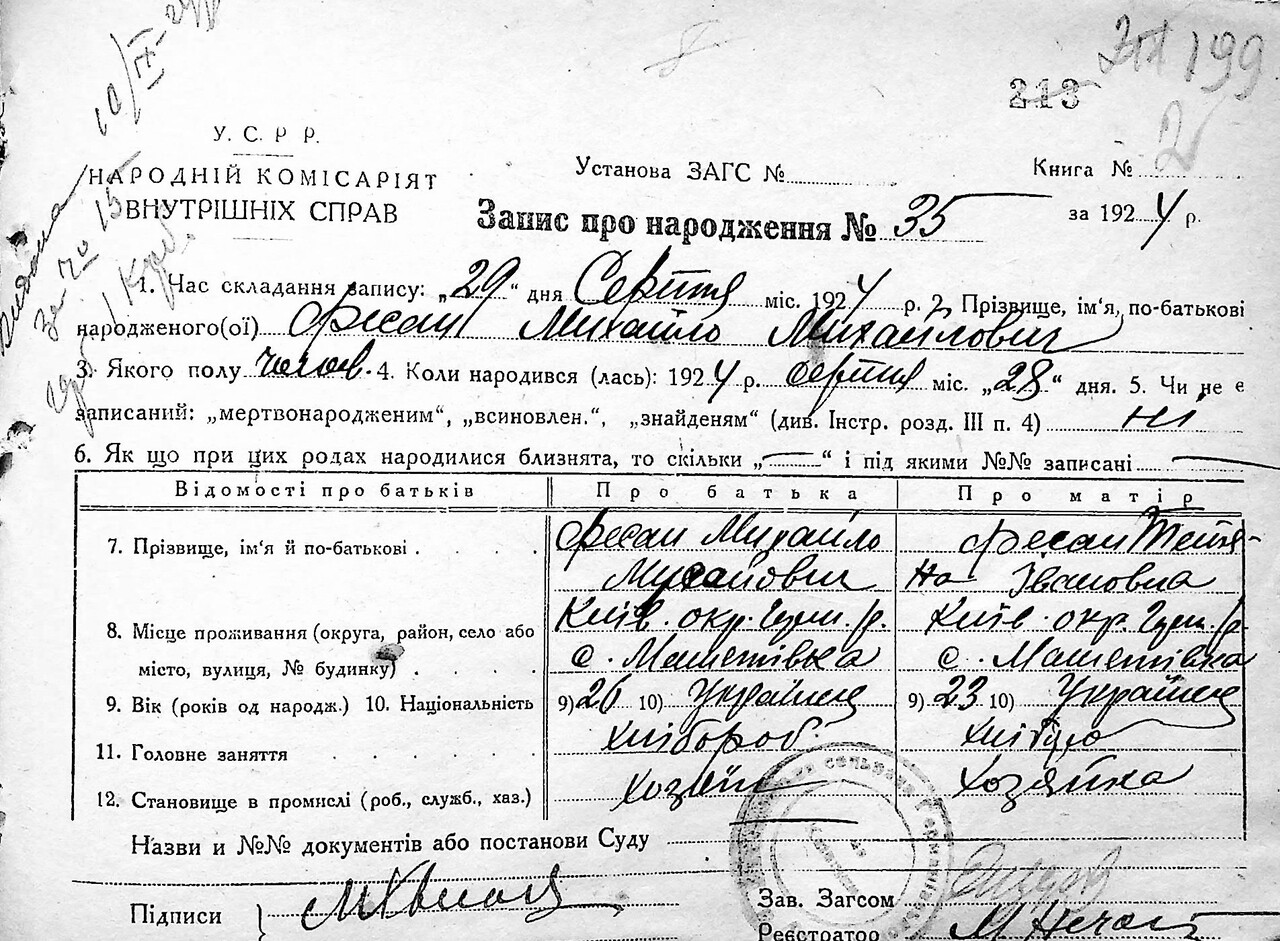 199
213
2
У. С. Р. Р.
НАРОДНІЙ КОМІСАРІЯТ
ВНУТРІШНІХ СПРАВ
Установа ЗАГС №
Книга №
Запис про народження № 35
за 1924 р.
1. Час складання запису: „29“ дня Серпня міс. 1924 р. 2. Прізвище, ім‘я, по-батькові
народженого(ої) Фесан Михайло Михайлович
3. Якого полу челов. 4. Коли народився (лась): 1924 р. серпня міс. „28“ дня. 5. Чи не є
записаний: „мертвонародженим“, „всиновлен.“, „знайденям“ (див. Інстр. розд. III п. 4) ні
6. Як що при цих родах народилися близнята, то скільки „—“ і під якими №№ записані —
Відомості про батьків Про батька Про матір
7. Прізвище, ім‘я й по-батькові . . . . Фесан Михайло Фесан Тетя-
на Івановна
8. Місце проживання (округа, район, село або Київ. окр. р. Київ. окр. р.
місто, вулиця, № будинку) . . . . с. Машетівка с. Машетівка
9. Вік (років од народж.) 10. Національність 9) 26 10) Українец 9) 23 10) Українец
11. Головне заняття . . . . . Хлібороб
12. Становище в промислі (роб., служб., хаз.) Хозяїн Хозяйка
Назви и №№ документів або постанови Суду
Підписи
Зав. Загсом
Реєстратор